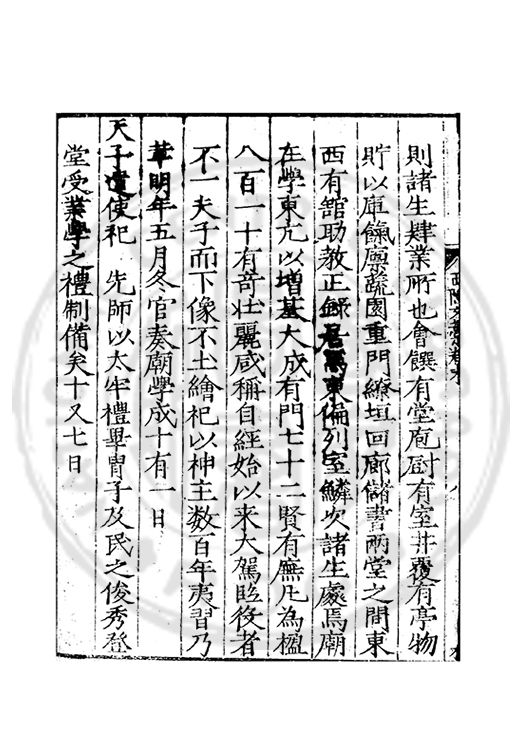 則諸生肄業所也會饌有堂庖厨有室井覆有亭物
貯以庫餼廪蔬園重門繚垣回廊儲書兩堂之間東
西有舘助教正錄居焉東偏列室鱗次諸生處焉廟
在學東亢以增基大成有門七十二賢有廡凡為楹
八百一十有奇壯麗咸稱自經始以来大駕臨役者
不一夫子而下像不土繪祀以神主数百年夷習乃
革明年五月冬官奏廟學成十有一日
天子遣使祀 先師以太牢禮畢冑子及民之俊秀登
堂受業學之禮制備矣十又七日